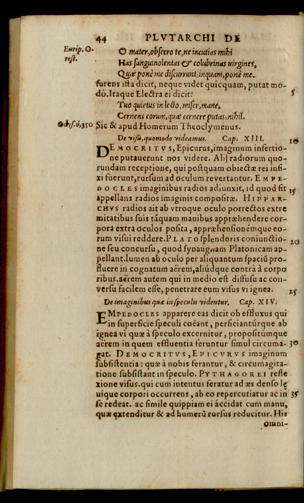 44 PLVTARCHI DE
Eurip. O-
rest.
O mater, obsecro te, ne incutias mihi
Has sanguinolentas & colubrinas virgines,
Quæ ponè me discurrunt, inquam, ponè me.
furens ista dicit, neque videt quicquam, putat mo-
dò. Itaque Electra ei dicit: 5
Tuo quietus in lecto, miser, mane,
Cernens eorum, quæ cernere putas, nihil.
Sic & apud Homerum Theoclymenus.
De visu, quomodo videamus. Cap. XIII.
DEMOCRITVS, Epicurus, imaginum insertio-
ne putauerunt nos videre. Alij radiorum quo-
rundam receptione, qui postquam obiectæ rei infi-
xi fuerunt, rursum ad oculum reuertantur. EMPE-
DOCLES imaginibus radios adiunxit, id quod fit 15
appellans radios imaginis compositæ. HIPPAR-
CHVS radios ait ab vtroque oculo porrectos extre
mitatibus suis tãquam manibus appræhendere cor-
pora extra oculos posita, appræhensionémque eo-
rum visui reddere. PLATO splendoris coniunctio- 20
ne seu concursu, quod συναυγειαν Platonicam ap-
pellant. lumen ab oculo per aliquantum spacii pro-
fluere in cognatum aërem, aliúdque contrà à corpo
ribus. aërem autem qui in medio est diffusus ac con-
uersu facilem esse, penetrare eum visus vi ignea. 25
De imaginibus quæ in speculo videntur. Cap. XIV.
EMPEDOCLES apparere eas dicit ob effluxus qui
in superficie speculi coëant, perficiantúrque ab
ignea vi quæ à speculo excernitur, propositúmque
acrem in quem effluentia feruntur simul circuma- 30
gat. DEMOCRITVS, EPICVRVS imaginum
subsistentia: quæ à nobis ferantur, & circumagita-
tione subsistant in speculo. PYTHAGOREI refle
xione visus. qui cum intentus feratur ad æs denso le
uique corpori occurrens, ab eo repercutiatur ac in 35
se redeat. ac simile quippiam ei accidat cum manu,
quæ extenditur & ad humerũ rursus reducitur. His
omni-